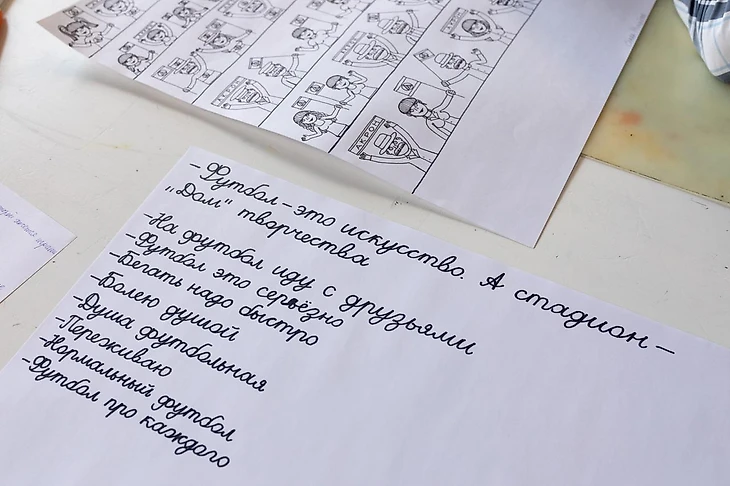 АКРОН
АКРОН
АКРОН
– Футбол – это искусство. А стадион –
"Дом" творчества
– На футбол иду с друзьями
– Футбол это серьёзно
– Бегать надо быстро
– Болею душой
– Душа футбольная
– Переживаю
– Нормальный футбол
– Футбол про каждого